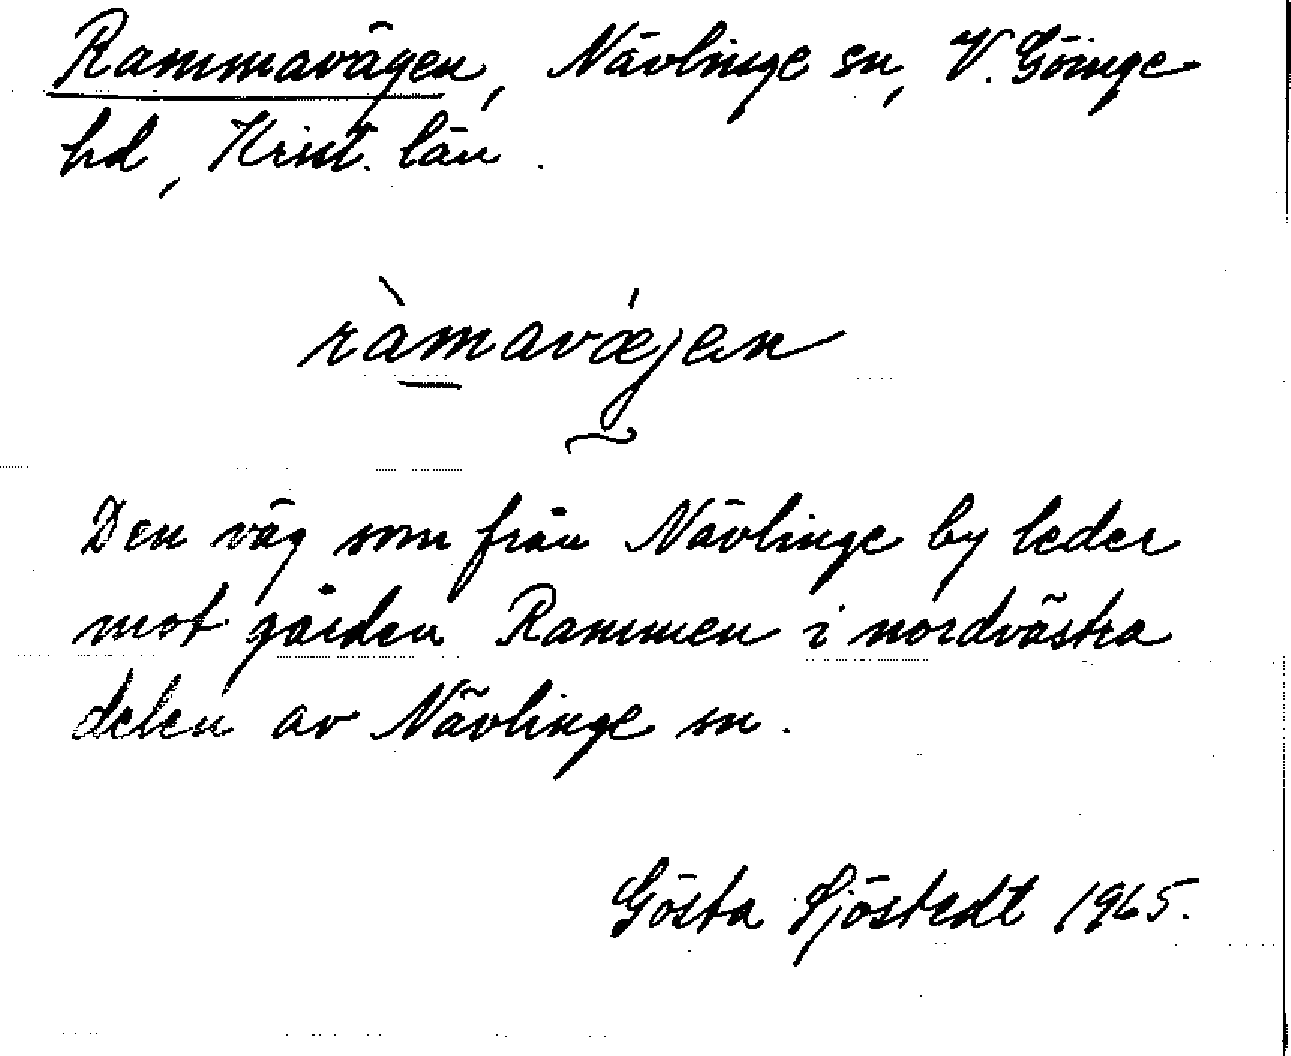 Rammavägen, Nävlinge sn, V. Göinge
hd, Krist. län.
ràmavǽjen
Den väg som från Nävlinge by leder
mot gården Rammen i nordvästra
delen av Nävlinge sn.
Gösta Sjöstedt 1965.